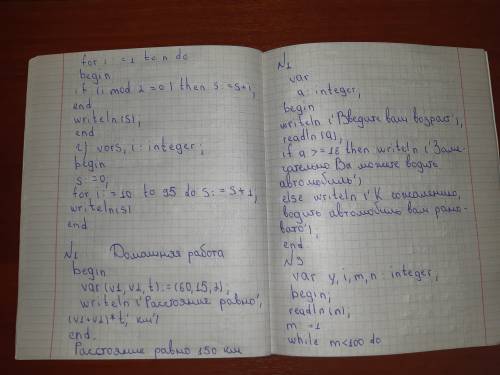 for i : = 1 to n do
begin
if (i mod 2 = 0) then s: = s+i;
end
writeln (s);
end
2) var s, i : integer;
begin
s: =0;
for i : = 10 to 95 do s: = s + 1;
writeln (s)
end
N1 Домашняя работа
begin
var (v1, v2, t) : = (60, 15, 2);
writeln ('Расстояние равно',
(v1+v2)*t,' км')
end.
Расстояние равно 150 км
N2
var
a: integer;
begin
writeln ('Введите ваш возраст');
readln (a);
if a >= 18 then writeln ('Заме-
чательно Вы можете водить
автомобиль')
else writeln ('К сожалению,
водить автомобиль вам рано-
вато');
end
N3
var y, i, m, n : integer;
begin;
readln (n);
m =1
while m<100 do